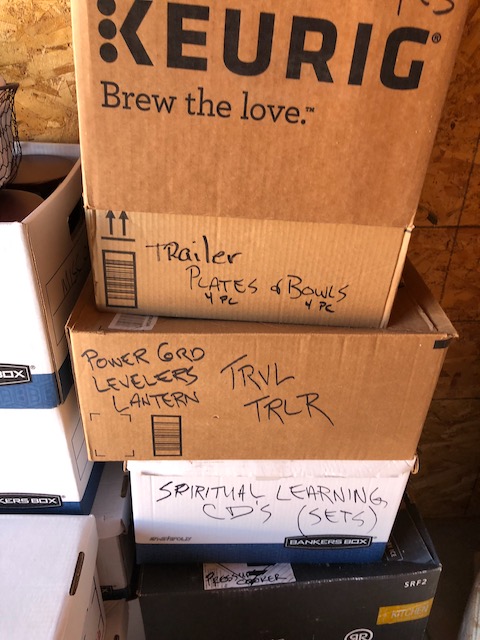 KEURIG®
Brew the love.™
TRailer
PLATES & BOWLS
4 PC 4 PC
POWER GRD
LEVELERS
LANTERN
TRVL
TRLR
SPIRITUAL LEARNING
CD'S (SETS)
BANKERS BOX
PRESSURE COOKER
SRF2
KITCHEN
OX
KERS BOX